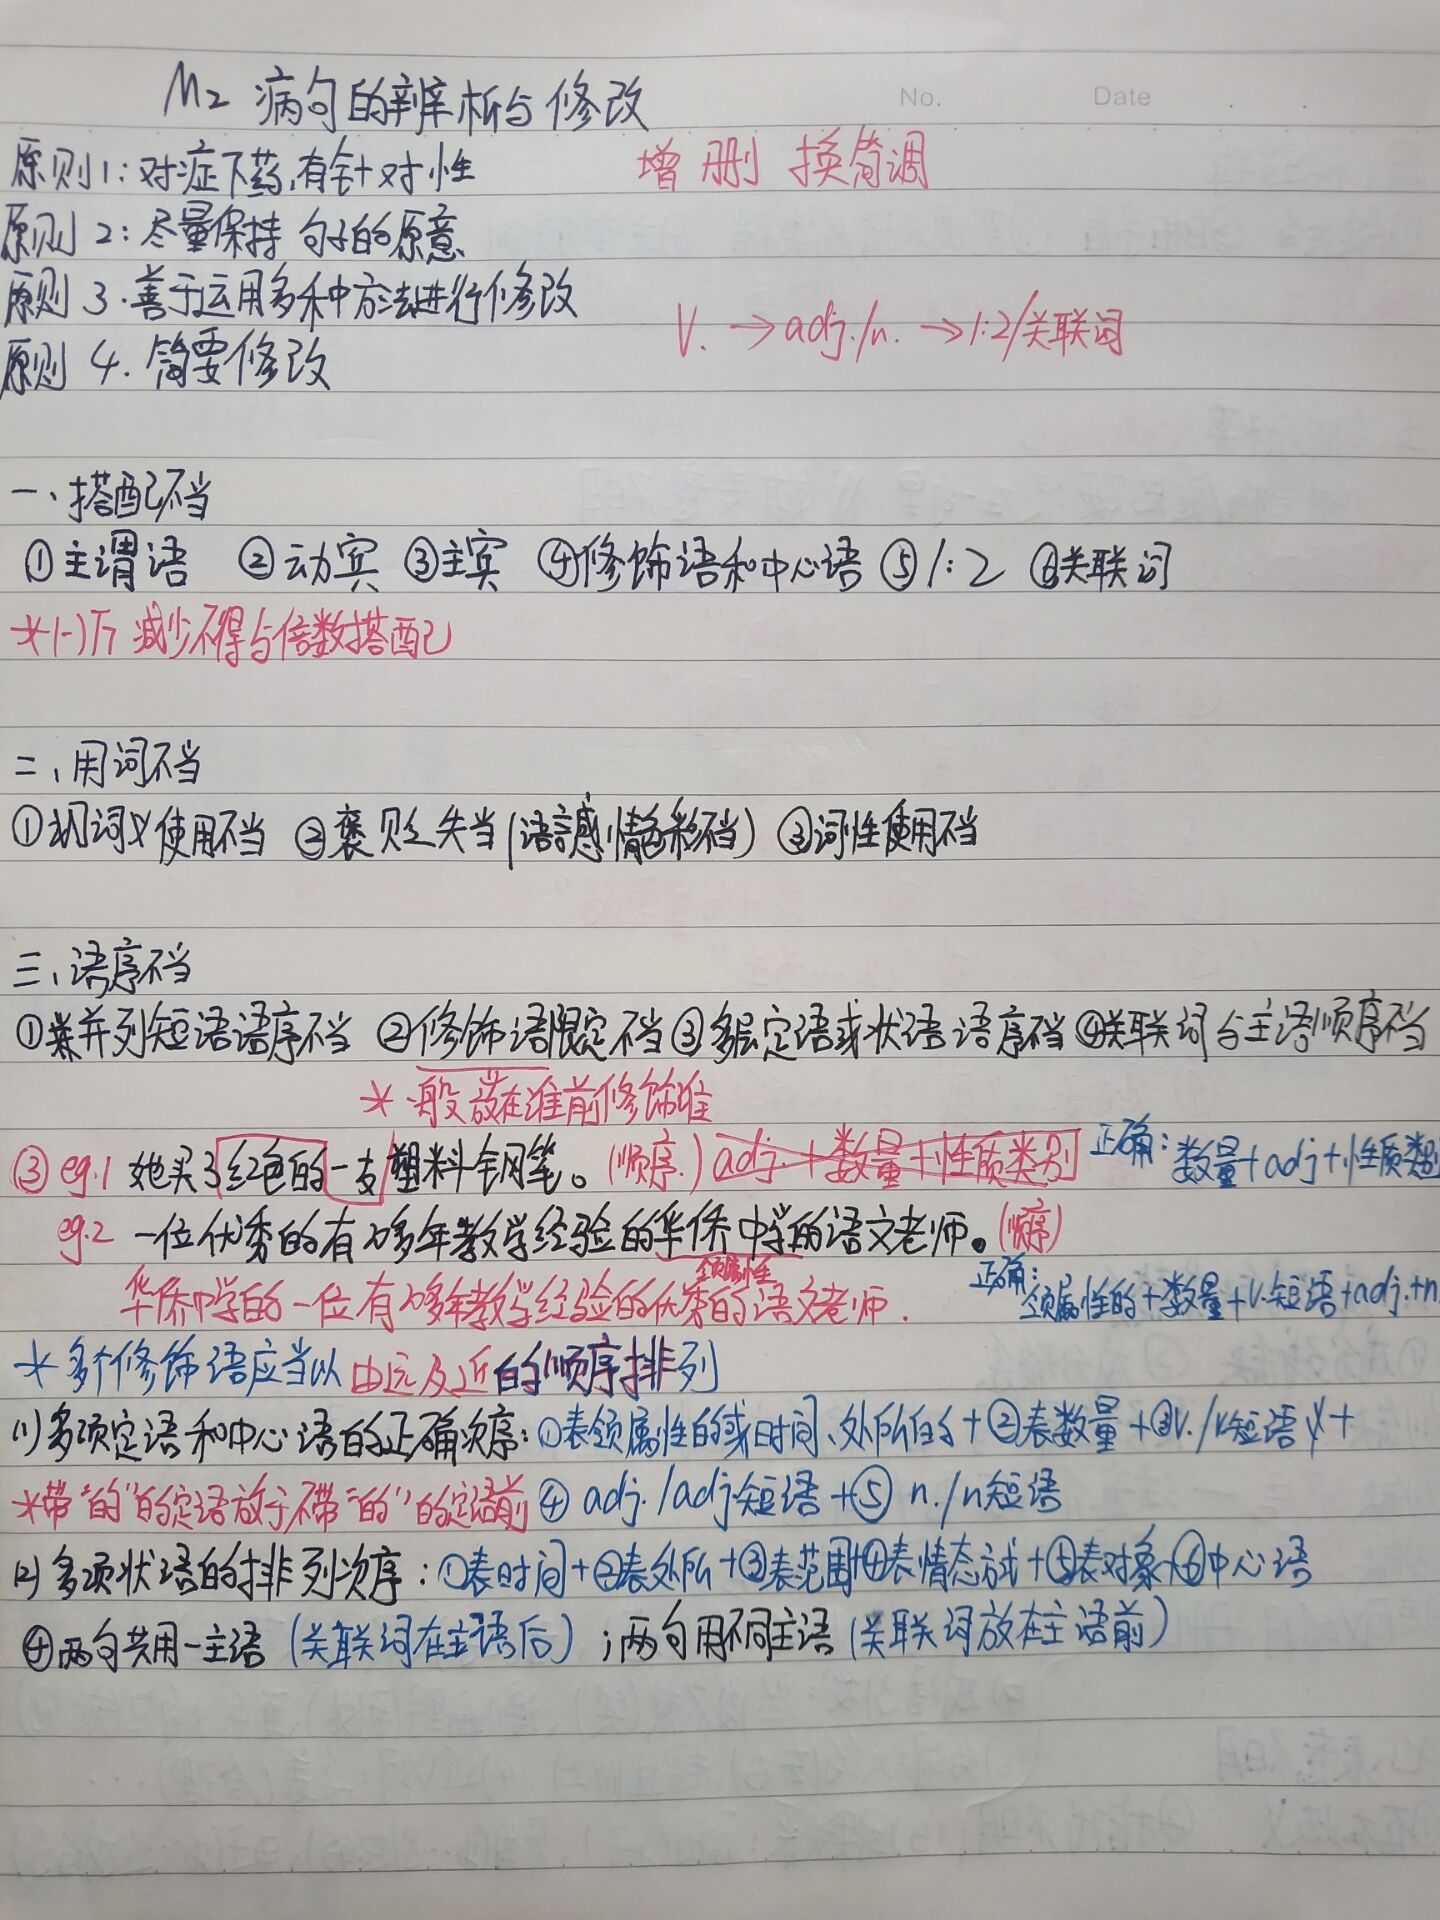 No. Date
M2 病句的辨析与修改
原则1:对症下药,有针对性 增 删 换 简 调
原则2:尽量保持句子的原意
原则3.善于运用多种方法进行修改
V. → adj./n. → 1:2/关联词
原则4.简要修改
一、搭配不当
①主谓语 ②动宾 ③主宾 ④修饰语和中心语 ⑤1:2 ⑥关联词
减少不得与倍数搭配
二、用词不当
①词义使用不当 ②褒贬失当(语言感情色彩不当) ③词性使用不当
三、语序不当
①并列短语语序不当 ②修饰语限定不当 ③多层定语或状语语序不当 ④关联词与主语顺序不当
*一般放在谁前修饰谁
③ eg.1 她买了红色的一支塑料钢笔。(顺序.) adj.+数量+性质类别 正确:数量+adj+性质类别
eg.2 一位优秀的有20多年教学经验的华侨中学的语文老师。(顺序)
领属性 正确:
华侨中学的一位有20多年教学经验的优秀的语文老师. 领属性的+数量+v.短语+adj.+n
*多个修饰语应当以由远及近的顺序排列
(1)多项定语和中心语的正确次序:①表领属性的或时间、处所的+②表数量+③v./v短语+
*带"的"的定语放于不带"的"的定语前 ④ adj./adj短语+⑤ n./n短语
(2)多项状语的排列次序:①表时间+②表处所+③表范围+④表情态方式+⑤表对象+⑥中心语
④两句共用一主语(关联词在主语后);两句用不同主语(关联词放在主语前)